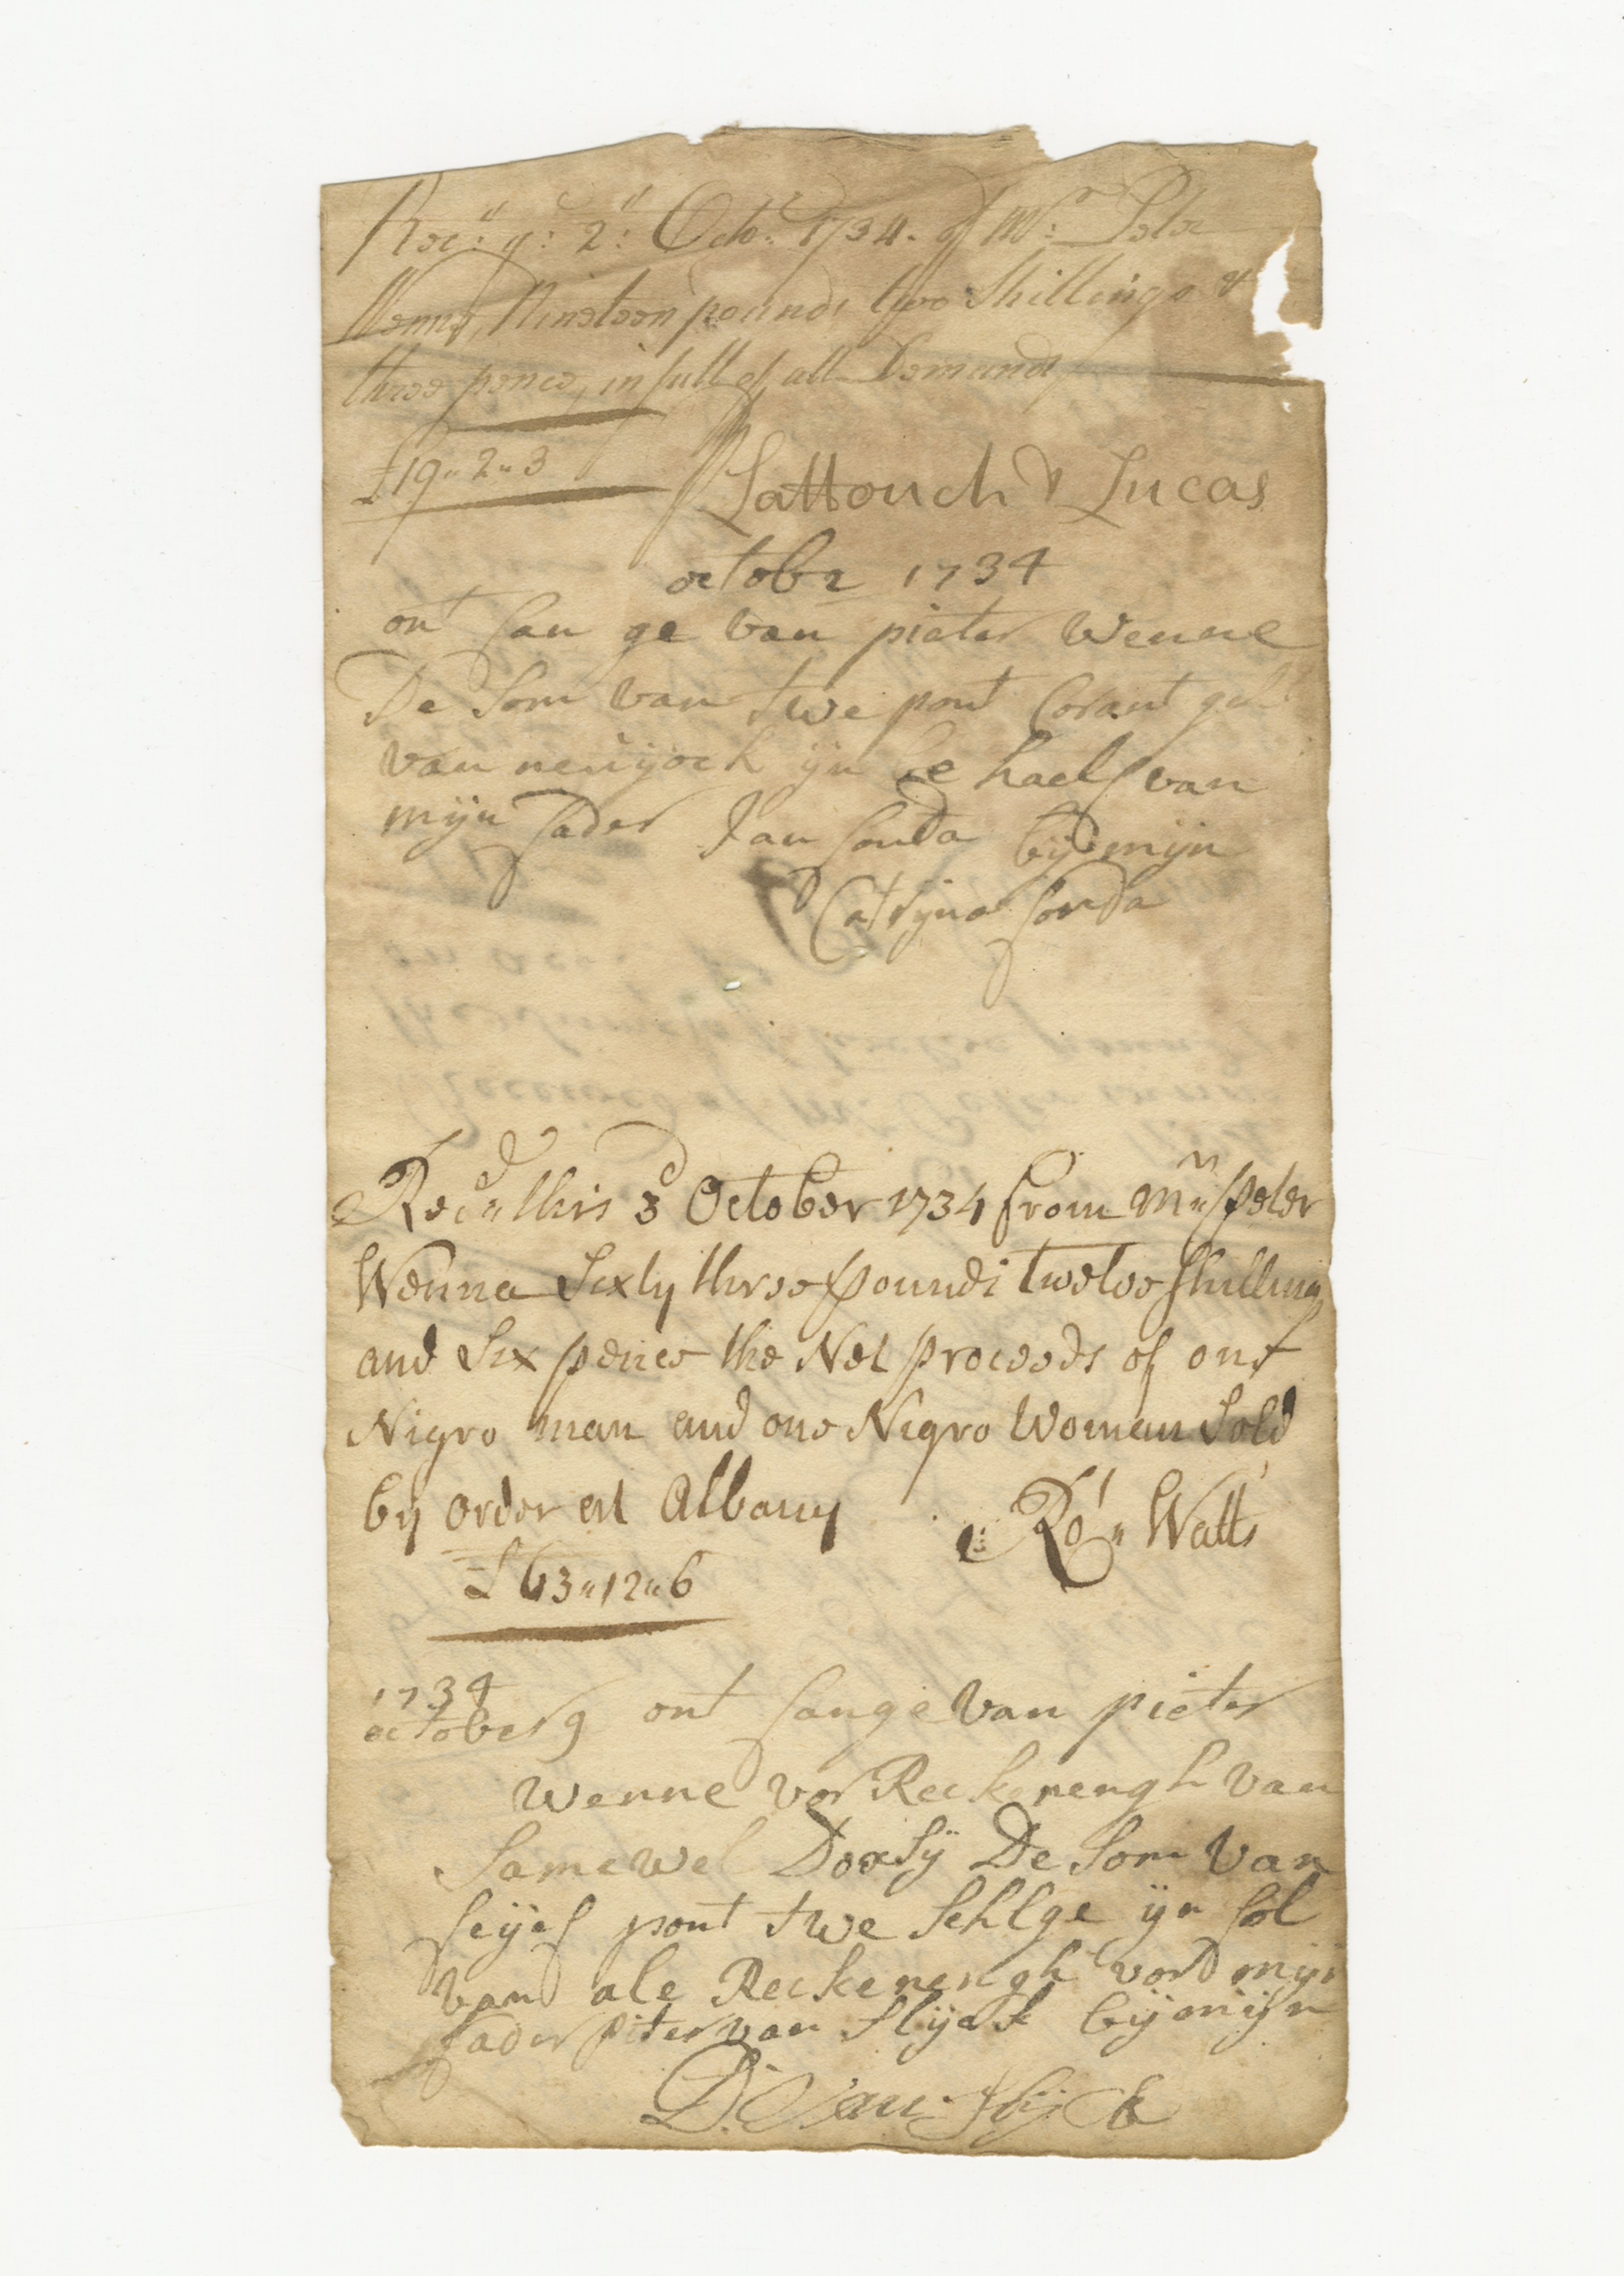 Rec:d y:e 2:d Octo:r 1734. of Mr: Peter
Wenne, Nineteen pounds two Shillings &
three pence, in full of all Demands
£19„2„3
Lattouch & Lucas
octobr 1734
ont fan ge van pieter Wenne
De Som van twe pont Corant gelt
van neuyock yn be haelf van
mijn fader Jan fonda bij mijn
Catrijna fonda
Rec'd this 3d October 1734 from Mr Peter
Wenne Sixty three pounds twelve shillings
and Six pence the Net proceeds of one
Nigro man and one Nigro Woman Sold
by order at Albany
Ro:t Watts
£63„12„6
1734
october 9 ont fange van pieter
Wenne vor Reckenengh van
Samewel Doxsy De Som van
feyef pont twe Schlge yn fol
van ale Reckenengh vord mijn
fader piter van Slyck bij mijn
D: Van Slyck